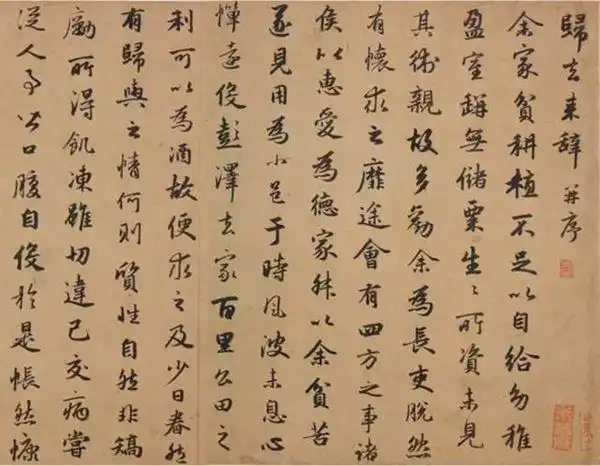 歸去來辭并序
余家貧耕植不足以自給幼稚
盈室缾無儲粟生〻所資未見
其術親故多勸余為長吏脫然
有懷求之靡途會有四方之事諸
侯以惠愛為德家叔以余貧苦
遂見用為小邑于時風波未息心
憚遠役彭澤去家百里公田之
利可以為酒故便求之及少日眷然
有歸與之情何則質性自然非矯
勵所得飢凍雖切違己交病嘗
從人事皆口腹自役於是悵然慷